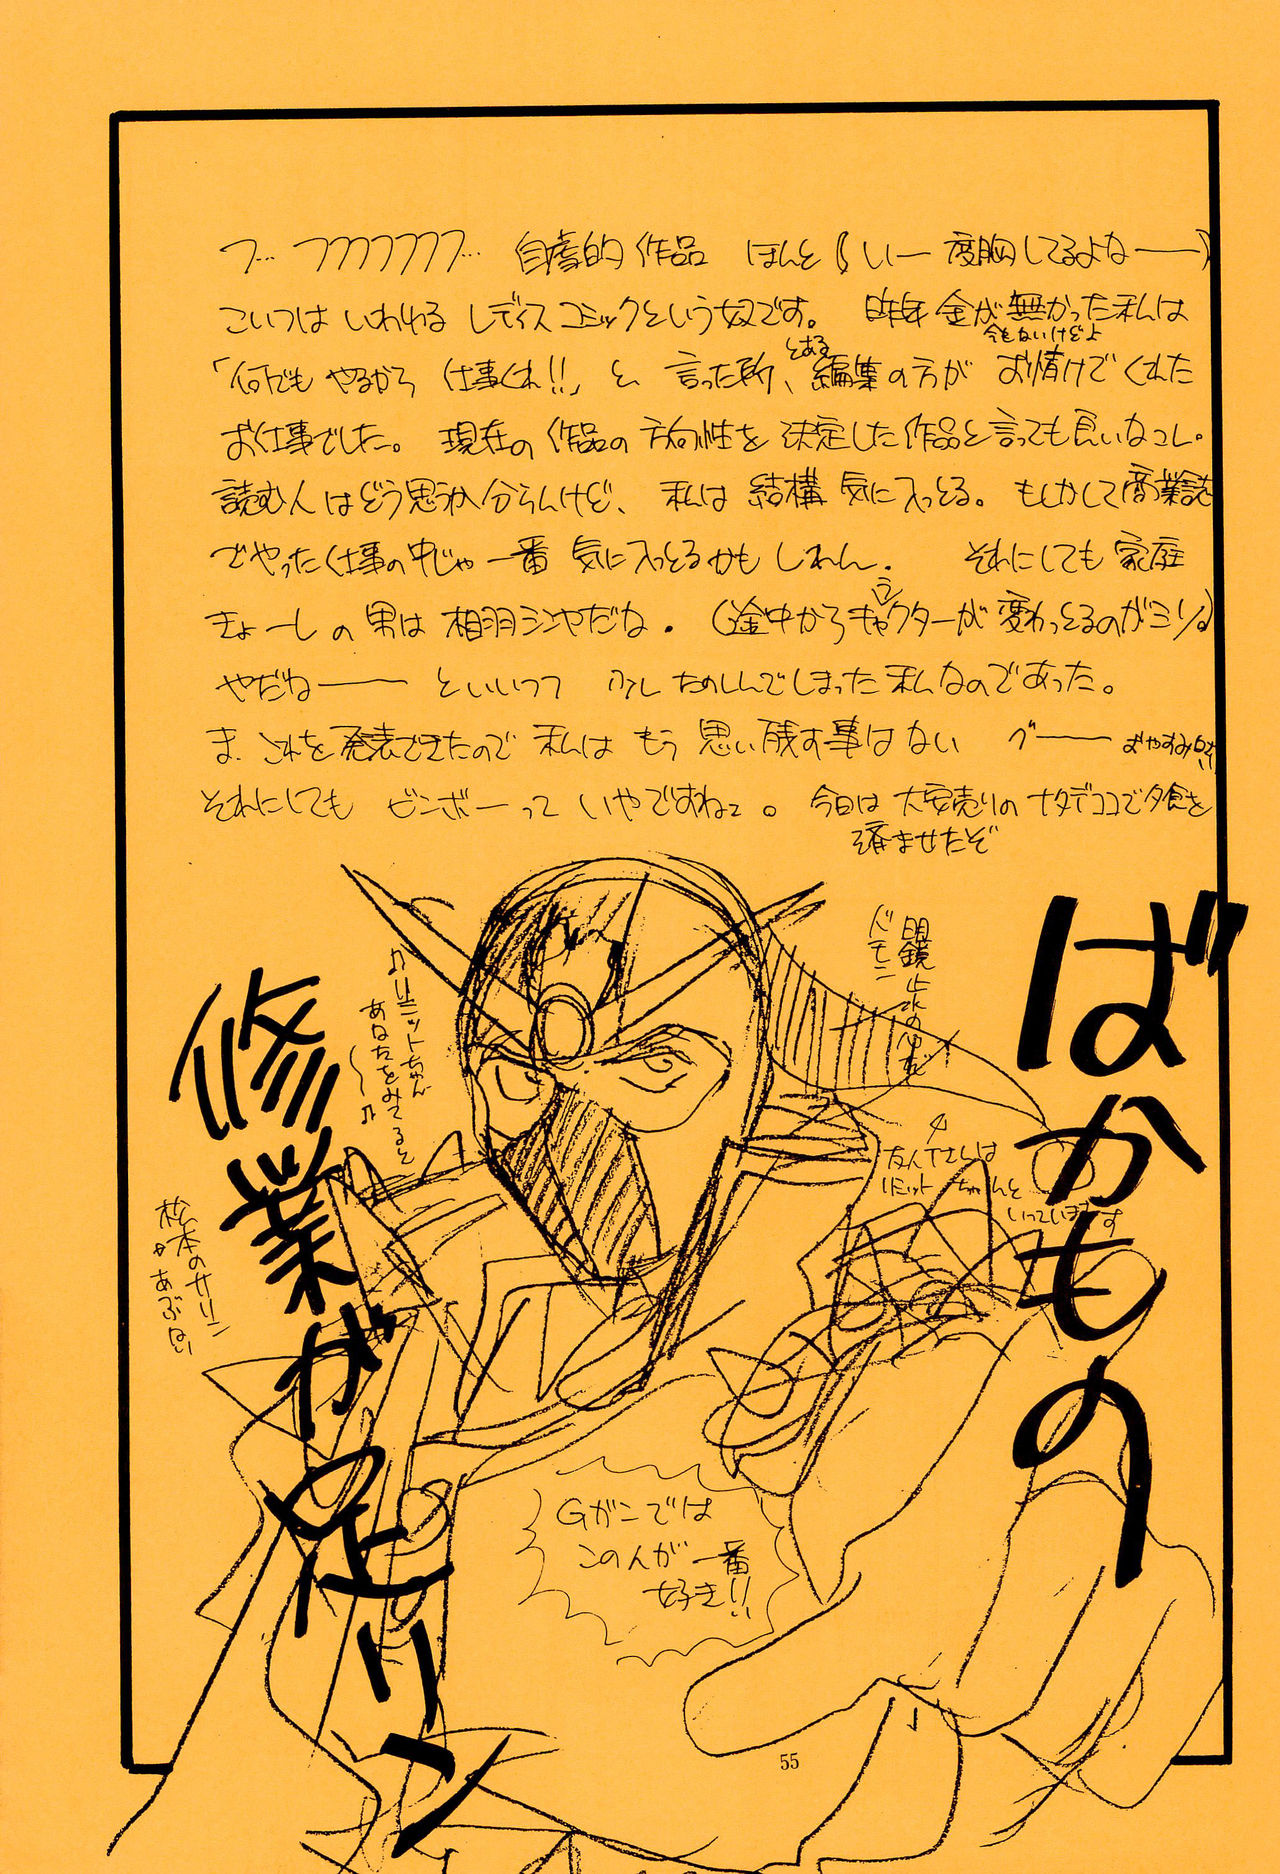 フ… フフフフフフフ… 自虐的作品 ほんと(いー度胸してるよなー)
こいつは いわゆる レディスコミックという奴です。 昨年金が無かった私は
今もないけどよ
「何でも やるから 仕事くれ!!」と 言った所、とある編集の方が お情けでくれた
お仕事でした。現在の作品の方向性を決定した作品と言っても良いなコレ。
読む人はどう思うか分らんけど、私は 結構 気に入っとる。もしかして商業誌
でやった仕事の中じゃ一番 気に入っとるかも しれん。 それにしても 家庭
きょーしの男は 相羽シンヤだな。(途中からキャラクターが変わっとるのがミソ)
やだねー といいつつ 少し たのしんでしまった私なのであった。
ま、これを発表できたので 私は もう 思い残す事はない グー おやすみ
それにしても ビンボーって いやですねェ。今日は 大安売りの ナタデココで夕食を
済ませたぞ
ばかもの
明鏡止水の
ドモン
♪リニットちゃん
あなたをみてると
〜♪
修業が足リン
友人Tさんは
リニットちゃんと
いっています
松本のサリン
が あぶない
Gガンでは
この人が 一番
好き!!
55